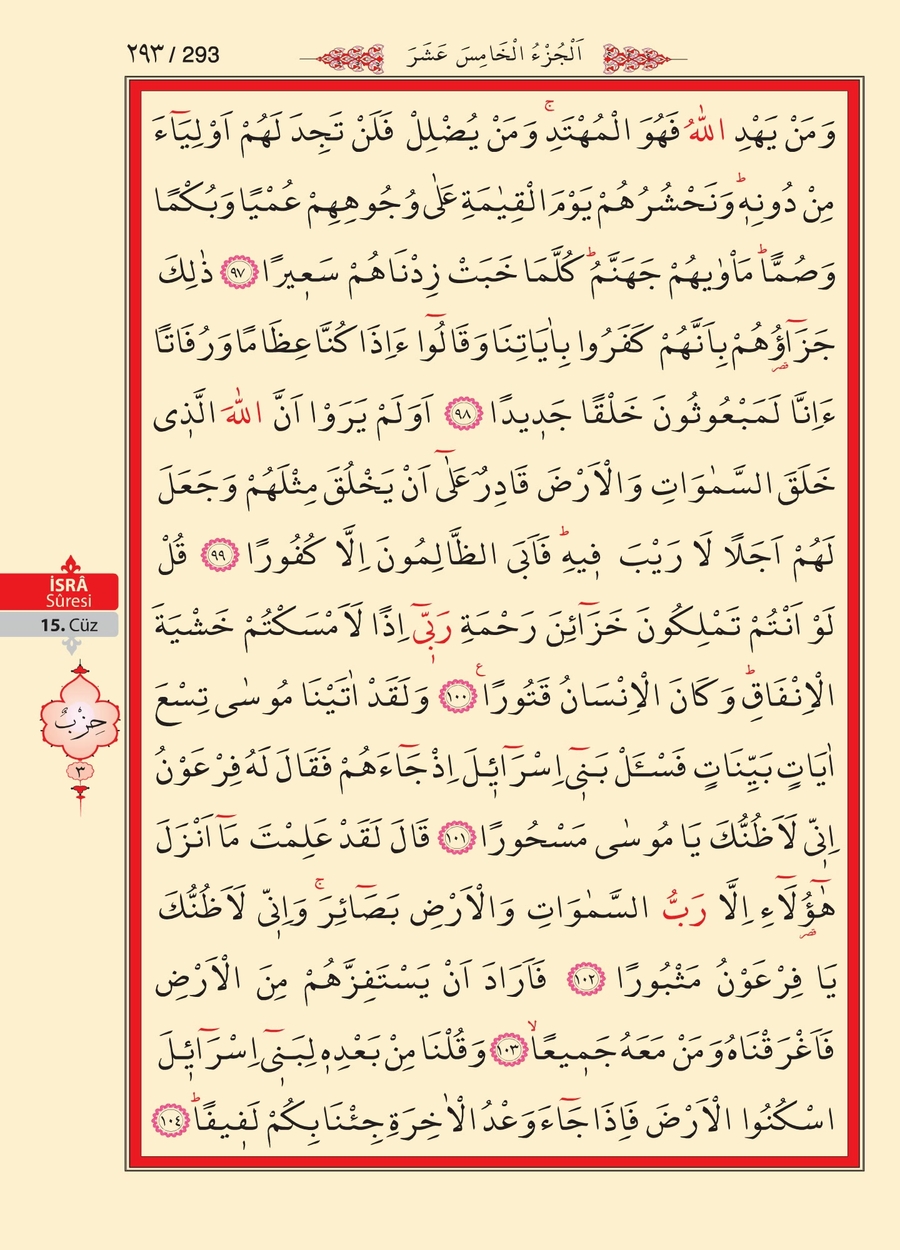 ٢٩٣ / 293
اَلْجُزْءُ الْخَامِسَ عَشَرَ
وَمَنْ يَهْدِ اللّٰهُ فَهُوَ الْمُهْتَدِۚ وَمَنْ يُضْلِلْ فَلَنْ تَجِدَ لَهُمْ اَوْلِيَٓاءَ
مِنْ دُونِه۪ۜ وَنَحْشُرُهُمْ يَوْمَ الْقِيٰمَةِ عَلٰى وُجُوهِهِمْ عُمْيًا وَبُكْمًا
وَصُمًّاۜ مَأْوٰيهُمْ جَهَنَّمُۜ كُلَّمَا خَبَتْ زِدْنَاهُمْ سَع۪يرًا ﴿٩٧﴾ ذٰلِكَ
جَزَٓاؤُ۬هُمْ بِاَنَّهُمْ كَفَرُوا بِاٰيَاتِنَا وَقَالُٓوا ءَاِذَا كُنَّا عِظَامًا وَرُفَاتًا
ءَاِنَّا لَمَبْعُوثُونَ خَلْقًا جَد۪يدًا ﴿٩٨﴾ اَوَلَمْ يَرَوْا اَنَّ اللّٰهَ الَّذ۪ى
خَلَقَ السَّمٰوَاتِ وَالْاَرْضَ قَادِرٌ عَلٰٓى اَنْ يَخْلُقَ مِثْلَهُمْ وَجَعَلَ
لَهُمْ اَجَلًا لَا رَيْبَ ف۪يهِۜ فَاَبَى الظَّالِمُونَ اِلَّا كُفُورًا ﴿٩٩﴾ قُلْ
لَوْ اَنْتُمْ تَمْلِكُونَ خَزَٓائِنَ رَحْمَةِ رَبّ۪ٓى اِذًا لَاَمْسَكْتُمْ خَشْيَةَ
الْاِنْفَاقِۜ وَكَانَ الْاِنْسَانُ قَتُورًا۟ ﴿١٠٠﴾ وَلَقَدْ اٰتَيْنَا مُوسٰى تِسْعَ
اٰيَاتٍ بَيِّنَاتٍ فَسْـَٔلْ بَن۪ٓى اِسْرَٓائ۪لَ اِذْ جَٓاءَهُمْ فَقَالَ لَهُ فِرْعَوْنُ
اِنّ۪ى لَاَظُنُّكَ يَا مُوسٰى مَسْحُورًا ﴿١٠١﴾ قَالَ لَقَدْ عَلِمْتَ مَٓا اَنْزَلَ
هٰٓؤُ۬لَٓاءِ اِلَّا رَبُّ السَّمٰوَاتِ وَالْاَرْضِ بَصَٓائِرَۚ وَاِنّ۪ى لَاَظُنُّكَ
يَا فِرْعَوْنُ مَثْبُورًا ﴿١٠٢﴾ فَاَرَادَ اَنْ يَسْتَفِزَّهُمْ مِنَ الْاَرْضِ
فَاَغْرَقْنَاهُ وَمَنْ مَعَهُ جَم۪يعًاۙ ﴿١٠٣﴾ وَقُلْنَا مِنْ بَعْدِه۪ لِبَن۪ٓى اِسْرَٓائ۪لَ
اسْكُنُوا الْاَرْضَ فَاِذَا جَٓاءَ وَعْدُ الْاٰخِرَةِ جِئْنَا بِكُمْ لَف۪يفًاۜ ﴿١٠٤﴾
İSRÂ
Sûresi
15. Cüz
حِزْبٌ
٣